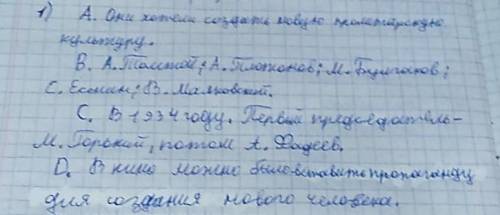 1) А. Они хотели создать новую пролетарскую
культуру.
В. А.Толстой; А.Платонов; М.Булгаков;
С. Есенин; В. Маяковский.
С. В 1934 году. Первый председатель-
М. Горький, потом А. Фадеев.
D. В кино можно было вставить пропаганду
для создания нового человека.